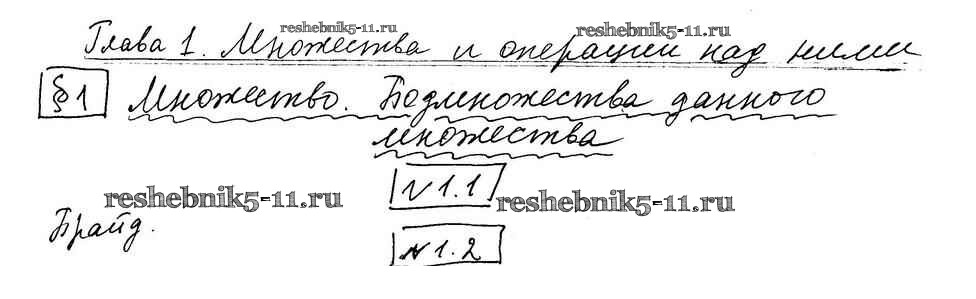 reshebnik5-11.ru reshebnik5-11.ru
Глава 1. Множества и операции над ними
§1 Множество. Подмножества данного
множества
№1.1
reshebnik5-11.ru reshebnik5-11.ru
Прайд.
№1.2